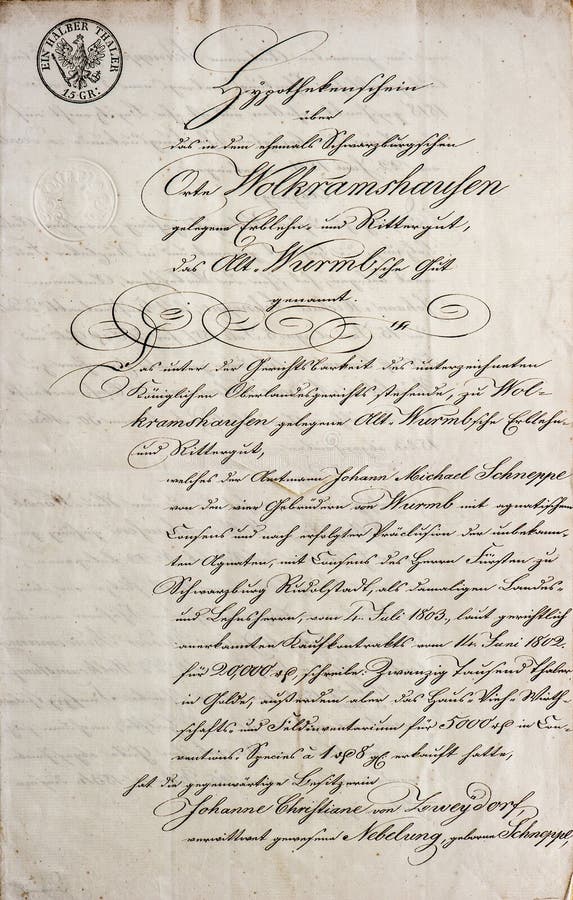 EIN HALBER THALER
15 GR:
Hypothekenschein
über
das in dem ehemals Schwarzburgschen
Orte Wolkramshausen
gelegene Erblehn- und Rittergut,
das Alt-Wurmb'sche Gut
genannt.
Das unter der Gerichtsbarkeit des unterzeichneten
Königlichen Oberlandesgerichts stehende, zu Wol-
kramshausen gelegene Alt-Wurmb'sche Erblehn-
und Rittergut,
welches der Amtmann Johann Michael Schneppe
von den vier Gebrüdern von Wurmb mit agnatischem
Consens und nach erfolgter Präclusion der unbekann-
ten Agnaten, mit Consens des Herrn Fürsten zu
Schwarzburg Rudolstadt, als damaligen Landes-
und Lehnsherrn, vom 4. Juli 1803, laut gerichtlich
anerkannten Kaufkontrakts vom 14. Juni 1802.
für 20,000 rℓ, schreibe: Zwanzig Tausend Thaler
in Golde, außerdem aber das Haus- Vieh- Wirth-
schafts- und Feldinventarium für 5000 rℓ in Con-
ventions-Species à 1 rℓ 8 gl. erkauft hatte,
hat die gegenwärtige Besitzerin
Johanne Christiane von Zweydorf,
verwittwet gewesene Nebelung, geborne Schneppe,